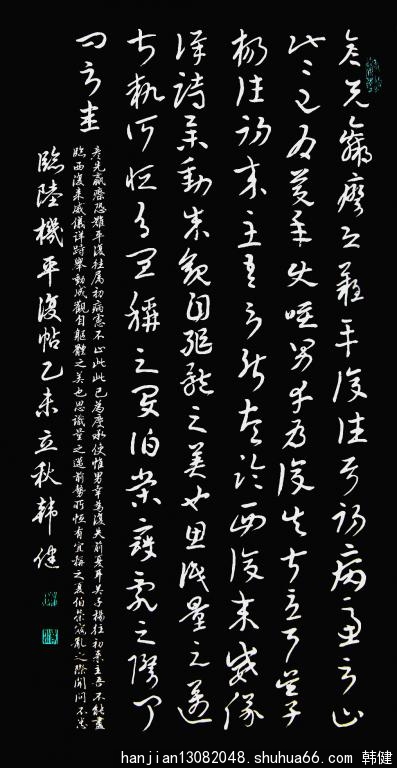 彦先羸瘵恐難平復往屬初病慮不止
此此已為慶承使唯男幸為復失前憂耳吳子
楊往初來主吾不能盡臨西復來威儀
詳跱舉動成觀自軀體之美也思識量之邁
前執所恒有宜稱之夏伯榮寇亂之際聞
問不悉
彦先羸瘵恐難平復往屬初病慮不止此此已為慶承使惟男幸為復失前憂耳吳子楊往初來主吾不能盡
臨西復來威儀詳跱舉動成觀自軀體之美也思識量之邁前勢所恒有宜稱之夏伯榮寇亂之際聞問不悉
臨陸機平復帖乙未立秋韓健
hanjian13082048.shuhua66.com 韩健